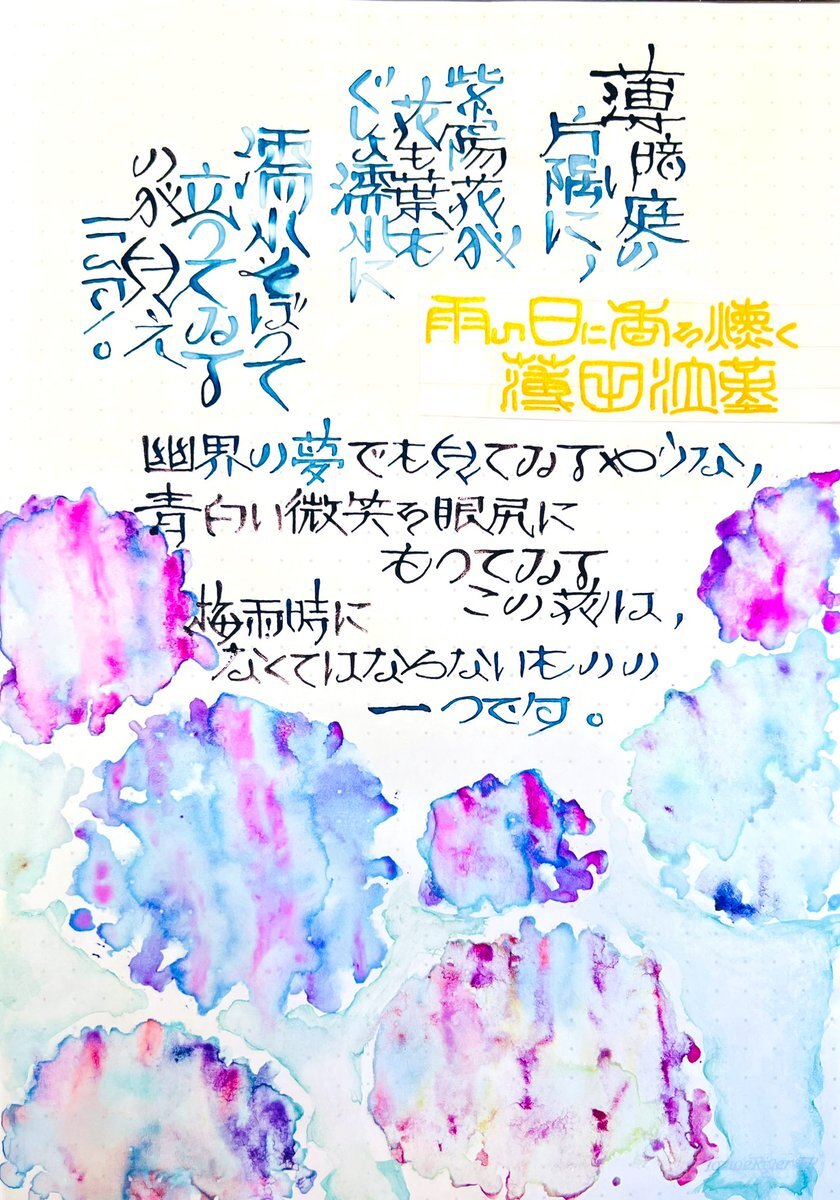 薄暗い庭の
片隅に、
紫陽花が
花も葉も
ぐしょ濡れに
濡れそぼつて
立つてゐる
のが見え
ます。
雨の日に香を燻く
薄田泣菫
幽界の夢でも見てゐるやうな、
青白い微笑を眼尻に
もつてゐる
この花は、
梅雨時に
なくてはならないものの
一つです。
TomoeRiver